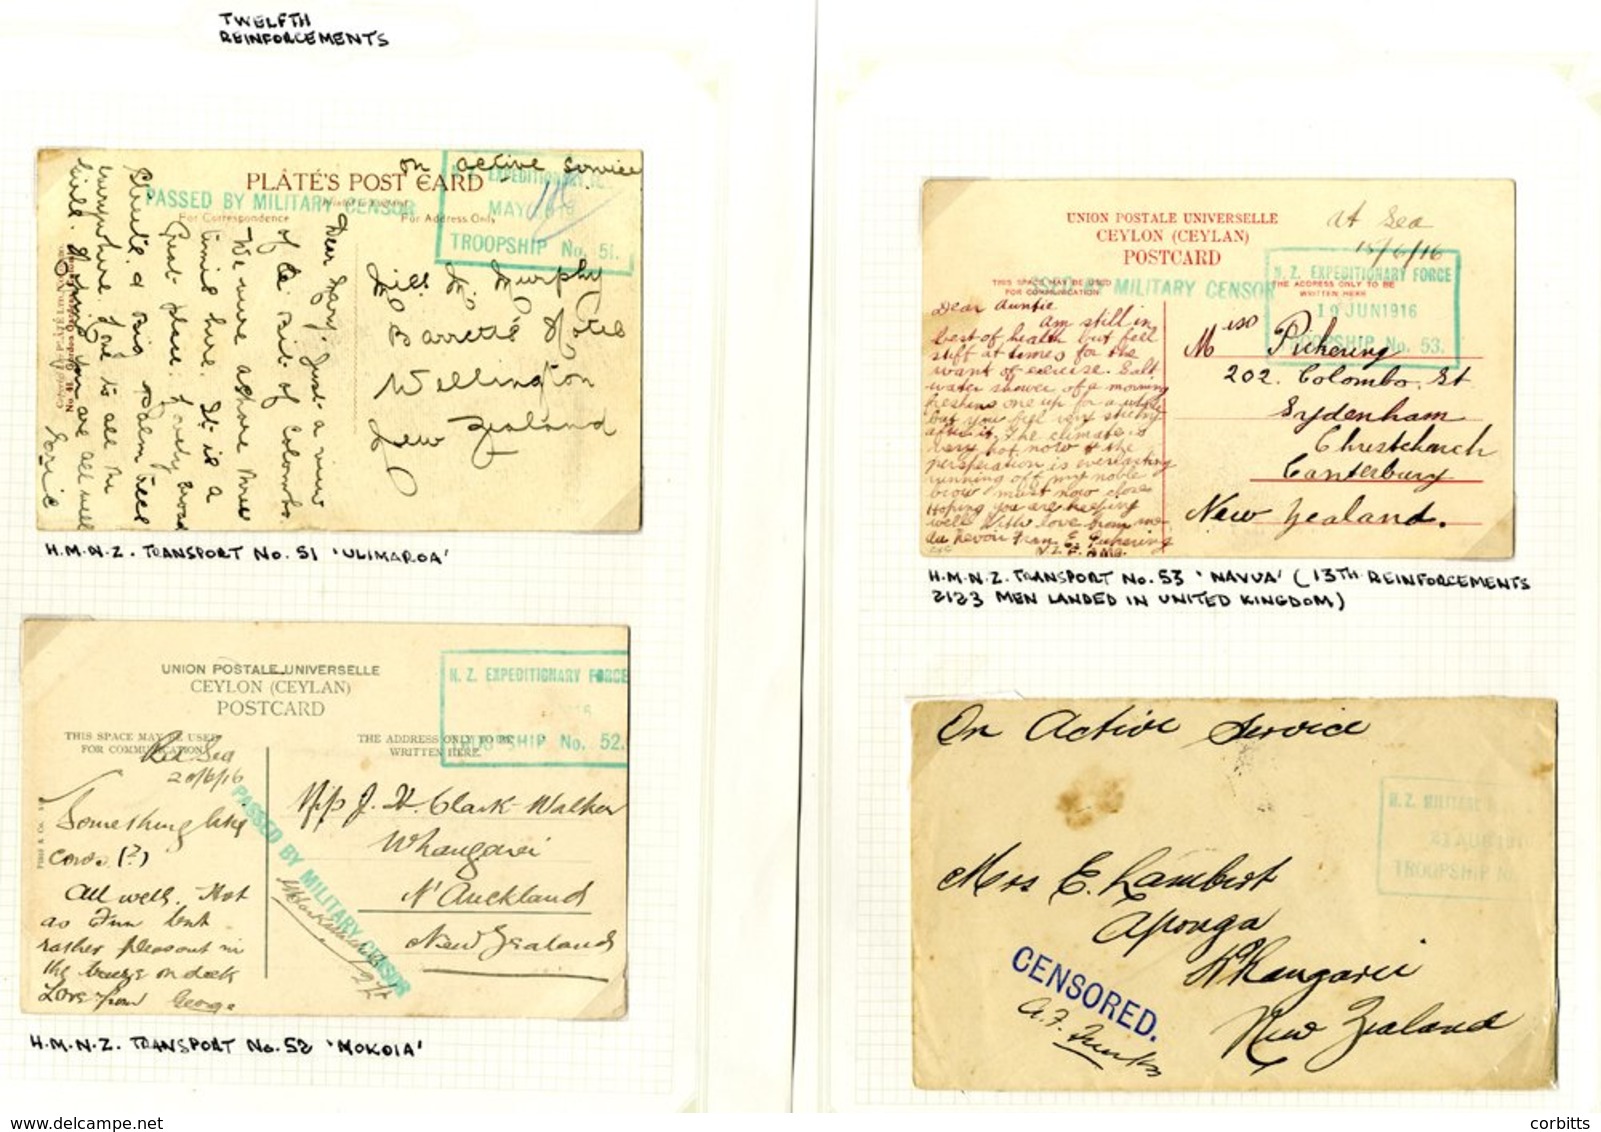 TWELFTH
REINFORCEMENTS
on active service
PLÂTÉ'S POST CARD
PASSED BY MILITARY CENSOR
For Correspondence
For Address Only
N.Z. EXPEDITIONARY
MAY
TROOPSHIP No. 51.
Dear Mary. Just a view
of a bit of Colombo.
We were ashore three
times here. It is a
Great place. Lovely broad
Streets & big Palm trees
everywhere. Love to all the
girls. Hoping you are all well
Murphy
Barrett's Hotel
Wellington
New Zealand
H.M.N.Z. TRANSPORT No. 51 'ULIMAROA'
UNION POSTALE UNIVERSELLE
CEYLON (CEYLAN)
POSTCARD
THIS SPACE MAY BE USED
FOR COMMUNICATION
THE ADDRESS ONLY TO BE
WRITTEN HERE.
N. Z. EXPEDITIONARY FORCE
TROOPSHIP No. 52.
Red Sea
20/6/16
Something like
cows (?)
All well. Hot
as Fun but
rather pleasant in
the breeze on deck
Love from George
PASSED BY MILITARY CENSOR
J. H. Clark-Walker
Whangarei
N' Auckland
New Zealand
H.M.N.Z. TRANSPORT No. 52 'MOKOIA'
UNION POSTALE UNIVERSELLE
CEYLON (CEYLAN)
POSTCARD
at Sea
15/6/16
THIS SPACE MAY BE USED
FOR COMMUNICATION
THE ADDRESS ONLY TO BE
WRITTEN HERE
BY MILITARY CENSOR
N. Z. EXPEDITIONARY FORCE
19 JUN 1916
TROOPSHIP No. 53.
Dear Auntie
Am still in
best of health but feel
stiff at times for the
want of exercise. Salt
water shower of a morning
freshens one up for a while
but you feel very sticky
after it. The climate is
very hot now & the
perspiration is everlasting
running off my noble
brow. Must now close
Hoping you are keeping
well. With love from me
Au Revoir from E. Pickering
Miss Pickering
202. Colombo. St
Sydenham
Christchurch
Canterbury
New Zealand.
H.M.N.Z. TRANSPORT No. 53 'NAVUA' (13TH REINFORCEMENTS
2123 MEN LANDED IN UNITED KINGDOM)
On Active Service
N. Z. MILITARY
23 AUG 191
TROOPSHIP No
Mrs E. Lambert
Aponga
Whangarei
New Zealand
CENSORED.
corbitts